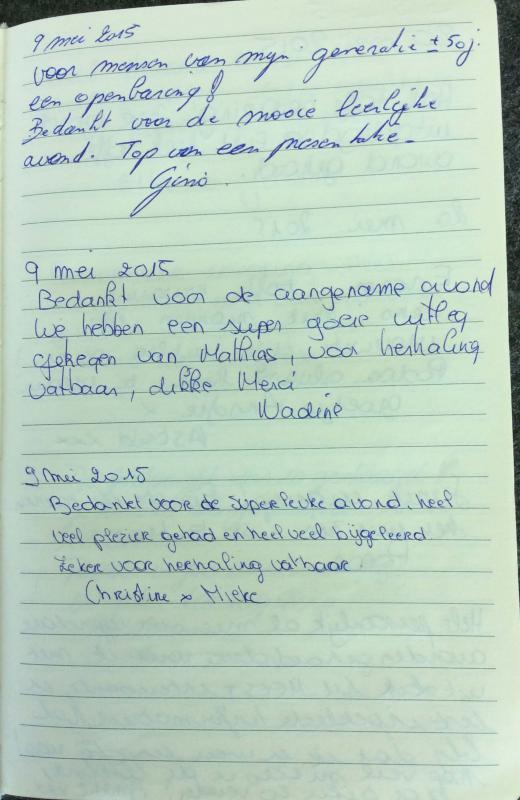 9 mei 2015
voor mensen van mijn generatie ± 50 j.
een openbaring!
Bedankt voor de mooie leerlijke
avond. Top van een presentatie.
Gino.
9 mei 2015
Bedankt voor de aangename avond
We hebben een super goeie uitleg
gekegen van Mathias, voor herhaling
vatbaar, dikke Merci
Nadine
9 mei 2015
Bedankt voor de superleuke avond. heel
veel plezier gehad en heel veel bijgeleerd
Zeker voor herhaling vatbaar.
Christine x Mieke